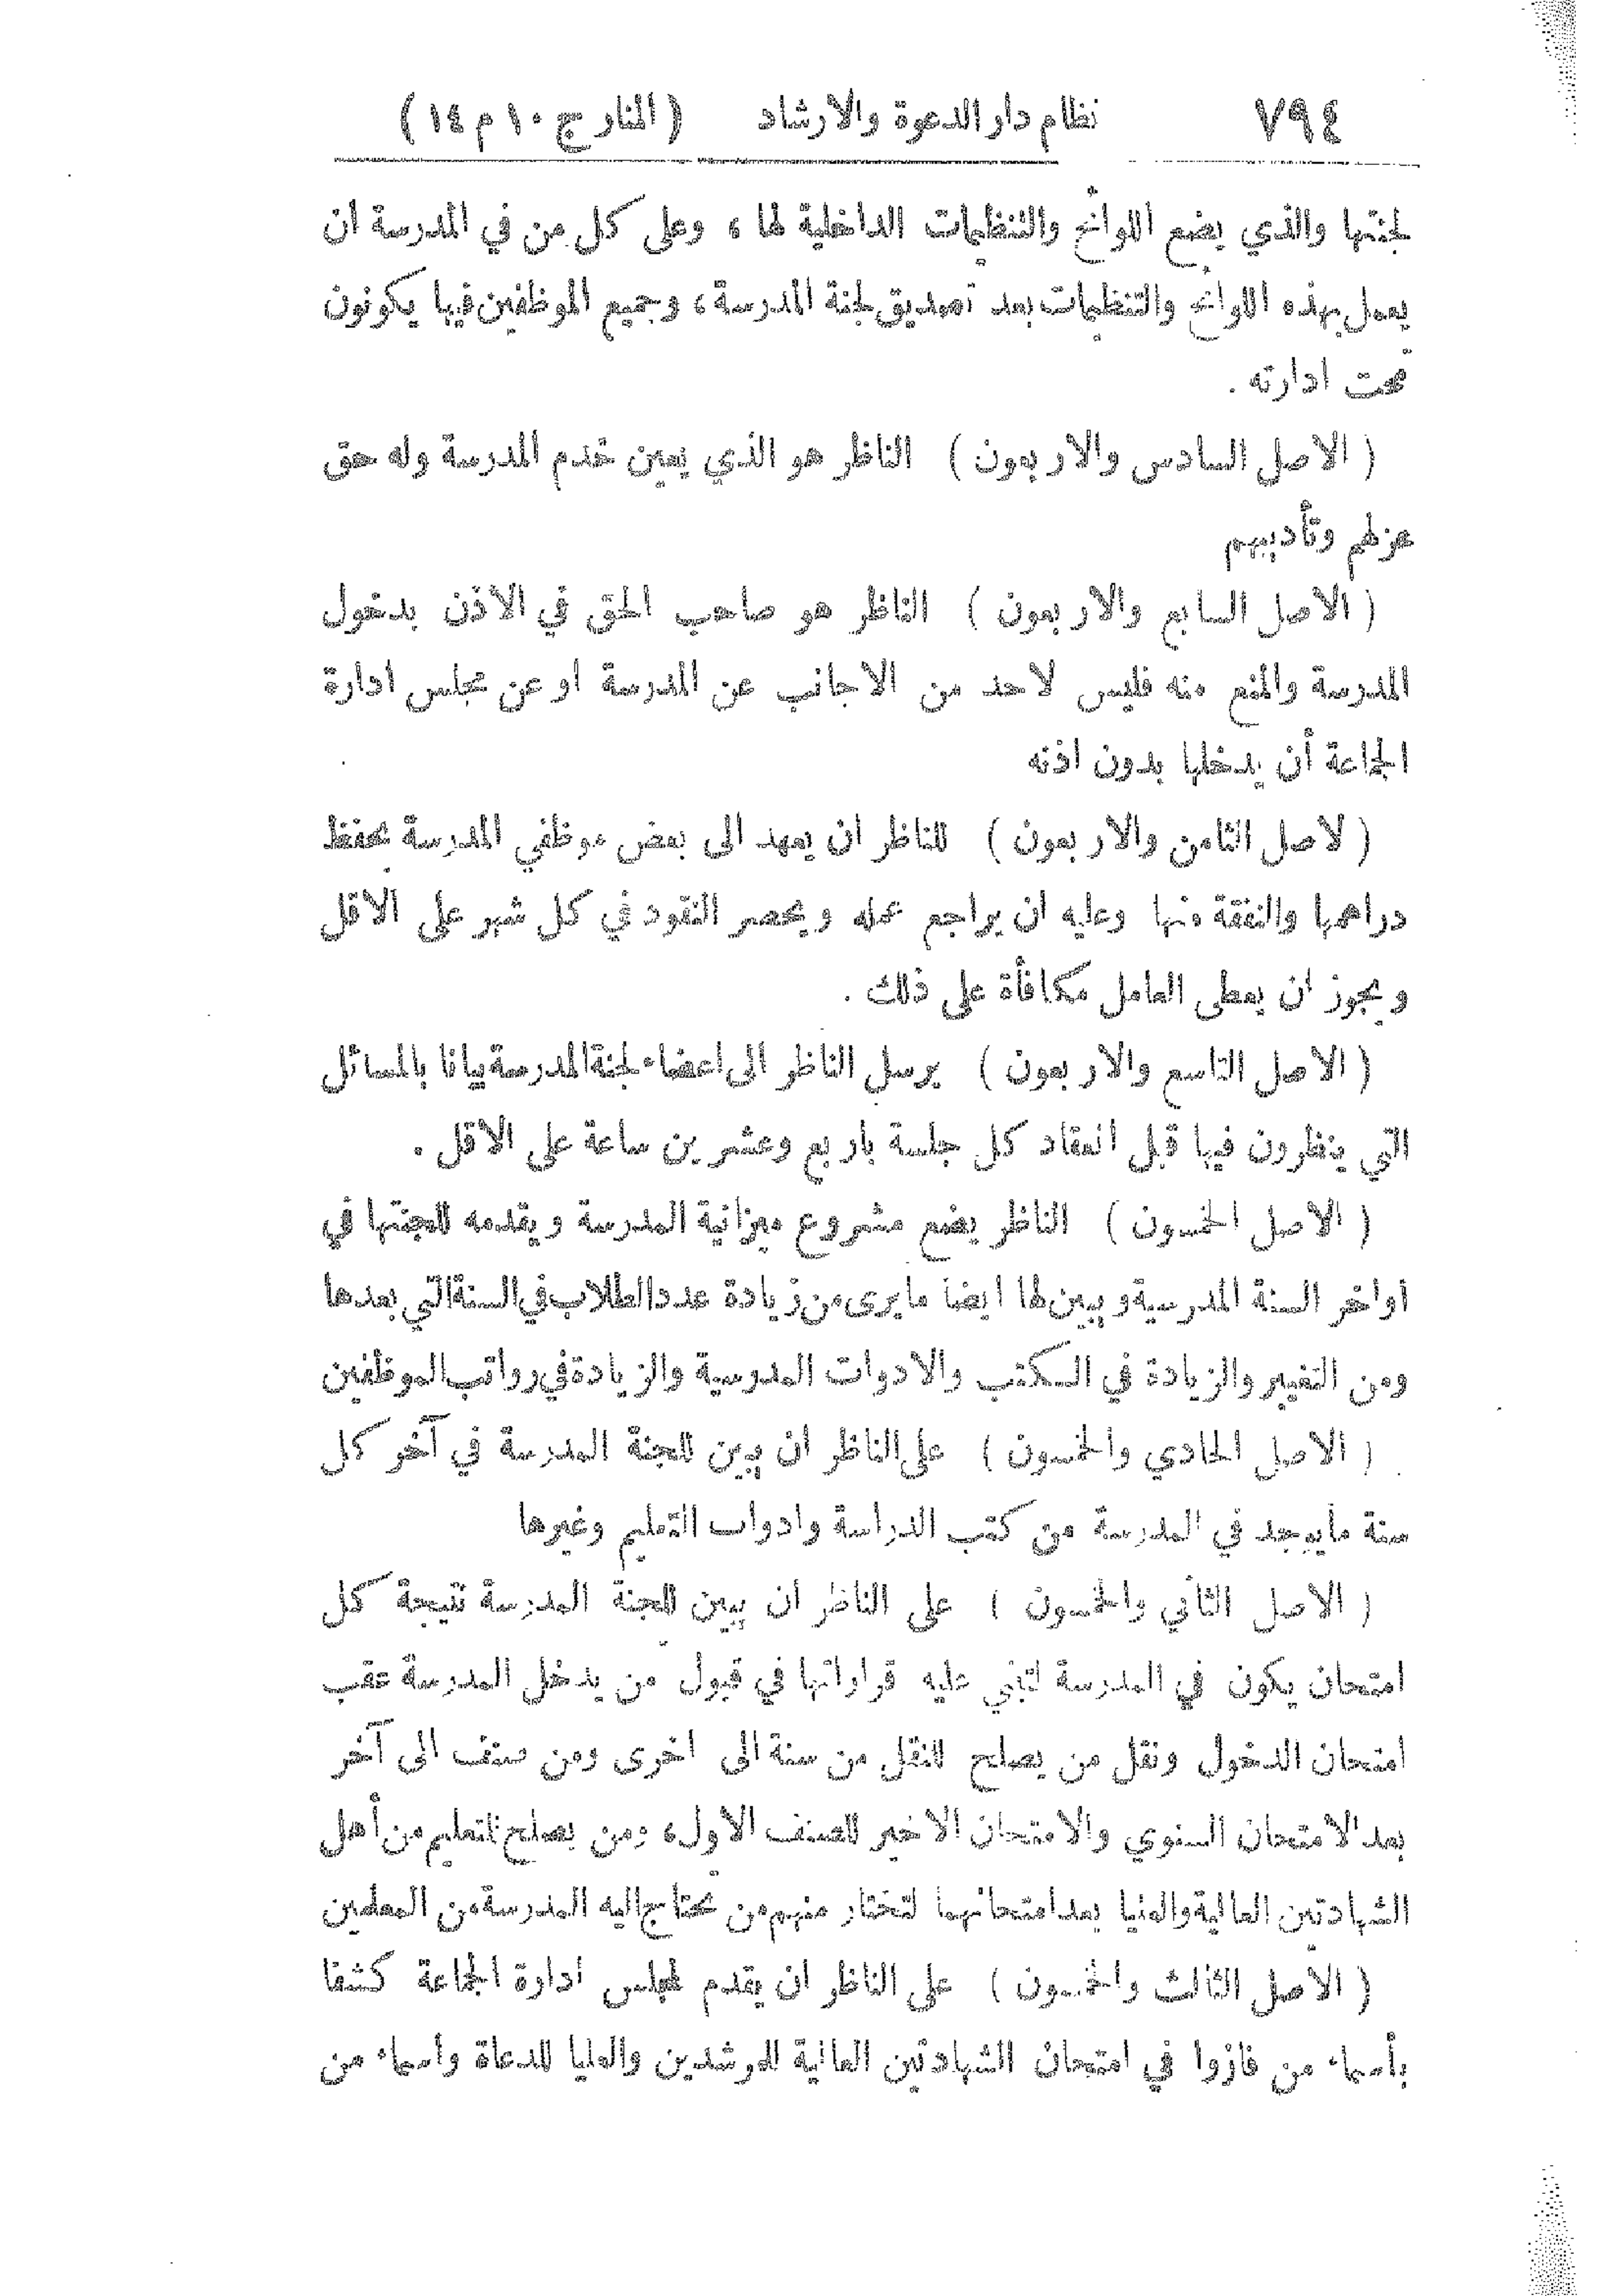 ٧٩٤ نظام دار الدعوة والارشاد (المنار ج ١٠ م ١٤)
لجنتها والذي يضع اللوائح والتنظيمات الداخلية لها ، وعلى كل من في المدرسة ان
يعمل بهذه اللوائح والتنظيمات بعد تصديق لجنة المدرسة ، وجميع الموظفين فيها يكونون
تحت ادارته .
( الاصل السادس والاربعون ) الناظر هو الذي يعين خدم المدرسة وله حق
عزلهم وتأديبهم
( الاصل السابع والاربعون ) الناظر هو صاحب الحق في الاذن بدخول
المدرسة والمنع منه فليس لاحد من الاجانب عن المدرسة او عن مجلس ادارة
الجماعة أن يدخلها بدون اذنه
( لاصل الثامن والاربعون ) للناظر ان يعهد الى بعض موظفي المدرسة بحفظ
دراهمها والنفقة منها وعليه ان يراجع عمله ويحصر النقود في كل شهر على الاقل
ويجوز ان يعطى العامل مكافأة على ذلك .
( الاصل التاسع والاربعون ) يرسل الناظر الى اعضاء لجنة المدرسة بيانا بالمسائل
التي ينظرون فيها قبل انعقاد كل جلسة باربع وعشرين ساعة على الاقل .
( الاصل الخمسون ) الناظر يضع مشروع ميزانية المدرسة ويقدمه للجنتها في
اواخر السنة المدرسية ويبين لها ايضا ما يرى من زيادة عدد الطلاب في السنة التي بعدها
ومن التغيير والزيادة في الكتب والادوات المدرسية والزيادة في رواتب الموظفين
( الاصل الحادي والخمسون ) على الناظر ان يبين للجنة المدرسة في آخر كل
سنة ما يوجد في المدرسة من كتب الدراسة وادوات التعليم وغيرها
( الاصل الثاني والخمسون ) على الناظر ان يبين للجنة المدرسة نتيجة كل
امتحان يكون في المدرسة لتبني عليه قراراتها في قبول من يدخل المدرسة عقب
امتحان الدخول ونقل من يصلح للنقل من سنة الى اخرى ومن صنف الى آخر
بعد الامتحان السنوي والامتحان الاخير للصنف الاول ، ومن يصلح للتعليم من أهل
الشهادتين العالية والعليا بعد امتحانهما لتختار منهم من تحتاج اليه المدرسة من المعلمين
( الاصل الثالث والخمسون ) على الناظر ان يقدم لمجلس ادارة الجماعة كشفا
بأسماء من فازوا في امتحان الشهادتين العالية للمرشدين والعليا للدعاة وأسماء من